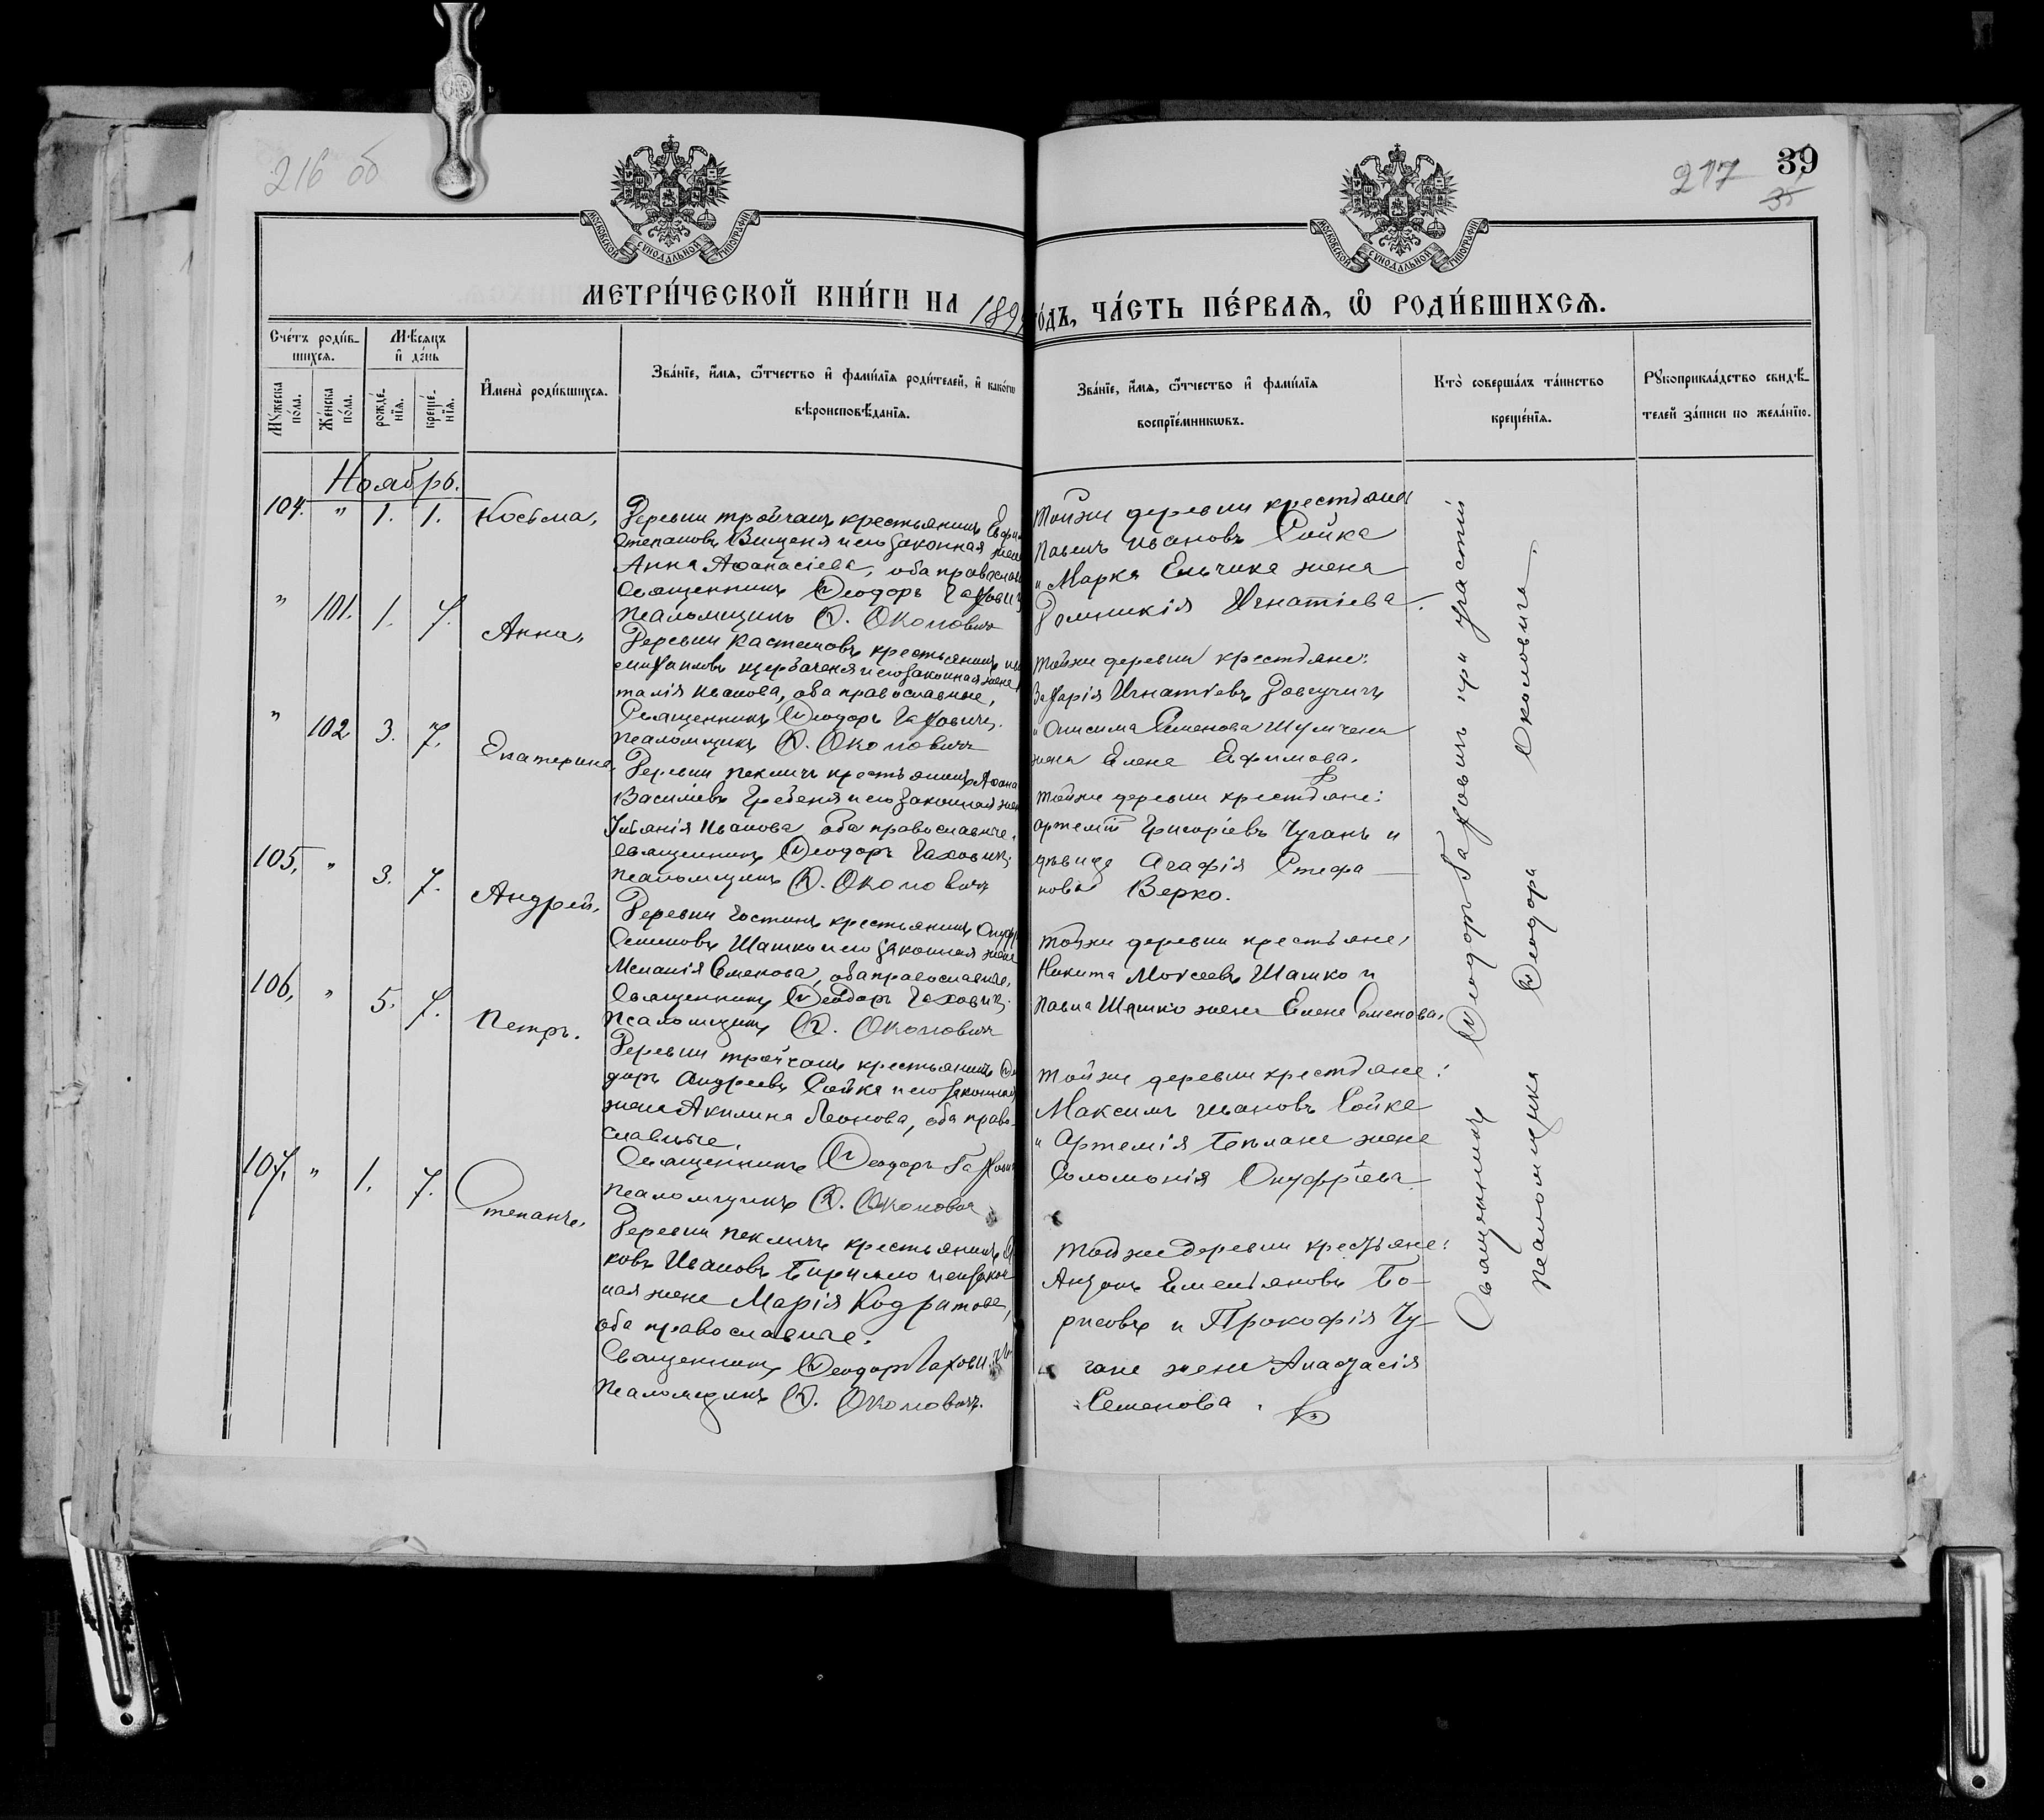 216 об
217
39
35
МОСКОВСКОЙ СѴНОДАЛЬНОЙ ТИПОГРАФІИ
МОСКОВСКОЙ СѴНОДАЛЬНОЙ ТИПОГРАФІИ
МЕТРИ́ЧЕСКОЙ КНИ́ГИ НА 189
О́ДЪ, ЧА́СТЬ ПЕ́РВАѦ, Ѡ РОДИ́ВШИХСѦ.
Сче́тъ роди́в-
шихсѧ.
Мѣ́сѧцъ
и де́нь
Мꙋ́жеска
по́ла.
Же́нска
по́ла.
рожде́-
нїѧ.
креще́-
нїѧ.
Имена̀ роди́вшихсѧ.
Зва́нїе, и́мѧ, ѻ҆́тчество и фами́лїѧ роди́телей, и како́гѡ
вѣроисповѣ́данїѧ.
Зва́нїе, и́мѧ, ѻ҆́тчество и фами́лїѧ
воспрїе́мникѡвъ.
Кто̀ соверша́лъ та́инство
креще́нїѧ.
Рꙋкоприкла́дство свидѣ́-
телей за́писи по жела́нїю.
Ноябрь.
104. " 1. 1. Косьма,
Деревни Тройчанъ крестьянинъ
Степановъ Вищеня и его законная
Анна Аѳанасіева, оба правосла
Священникъ Ѳеодоръ Гахович
Псаломщикъ Ѳ. Околовичъ
Тойже деревни крестьяне
Павелъ Ивановъ Сойка
и Марка Ельчика жена
Домникія Игнатіева.
" 101. 1. 7. Анна,
Деревни Кастешовъ крестьянинъ
Михаиловъ Щербаченя и его законная жена
талія Иванова, оба православные,
Священникъ Ѳеодоръ Гаховичъ.
Псаломщикъ Ѳ. Околовичъ
Тойже деревни крестьяне:
Захарія Игнатіевъ Довгучичъ
и Онисима Семенова Шумчена
жена Елена Ефимова.
" 102. 3. 7. Екатерина,
Деревни Пекличъ крестьянинъ Аѳана
Василіевъ Гребеня и его законная жен
Ульянія Иванова, оба православные.
Священникъ Ѳеодоръ Гаховичъ
Псаломщикъ Ѳ. Околовичъ
Тойже деревни крестьяне:
Артемій Григоріевъ Чуганъ и
дѣвица Агафія Стефа-
нова Верко.
105. " 3. 7. Андрей,
Деревни Гостинъ крестьянинъ Онуфр
Семеновъ Шашко и его законная жена
Меланія Семенова, оба православные,
Священникъ Ѳеодоръ Гаховичъ.
Псаломщикъ Ѳ. Околовичъ
Тойже деревни крестьяне,
Никита Моѵсеевъ Шашко и
Павла Шашко жена Елена Семенова.
106. " 5. 7. Петръ.
Деревни Тройчанъ крестьянинъ Ѳе
доръ Андреевъ Сойка и его законная
жена Акилина Леонова, оба право-
славные.
Священникъ Ѳеодоръ Гахович
Псаломщикъ Ѳ. Околович
Тойже деревни крестьяне:
Максимъ Ивановъ Сойка
и Артемія жена
Соломонія Онуфріева
107. " 1. 7. Степанъ,
Деревни Пекличъ крестьянинъ Я
ковъ Ивановъ и его закон
ная жена Марія Кодратова,
оба православные.
Священникъ Ѳеодоръ Гаховичъ
Псаломщикъ Ѳ. Околовичъ.
Тойже деревни крестьяне:
Антонъ Емельяновъ Бо-
рисовъ и Прокофія Чу-
гана жена Анастасія
Семенова.
Священникъ Ѳеодоръ Гаховичъ при участіи
Псаломщика Ѳеодора Околовича.